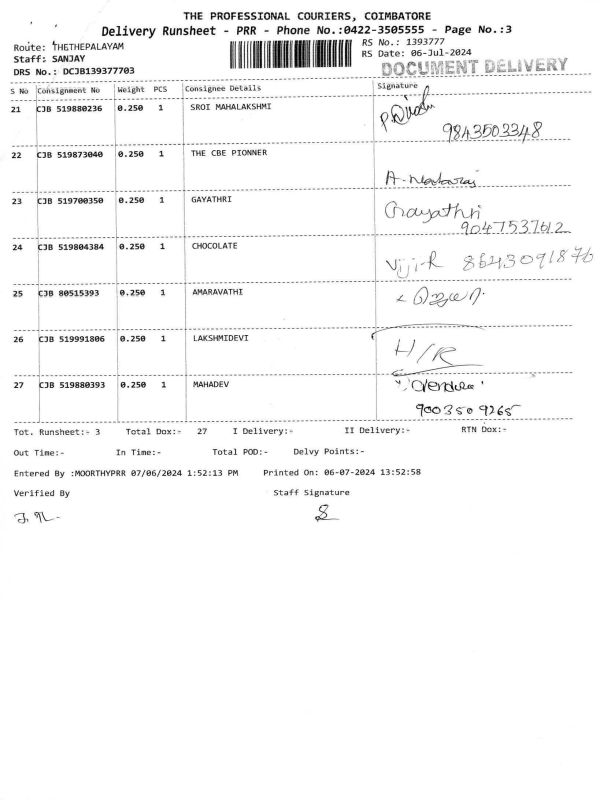 THE PROFESSIONAL COURIERS, COIMBATORE
Delivery Runsheet - PRR - Phone No.:0422-3505555 - Page No.:3
Route: THETHEPALAYAM
RS No.: 1393777
Staff: SANJAY
RS Date: 06-Jul-2024
DRS No.: DCJB139377703
DOCUMENT DELIVERY
S No Consignment No Weight PCS Consignee Details Signature
21 CJB 519880236 0.250 1 SROI MAHALAKSHMI
9843503348
22 CJB 519873040 0.250 1 THE CBE PIONNER
A.
23 CJB 519700350 0.250 1 GAYATHRI Gayathri
9047537612
24 CJB 519804384 0.250 1 CHOCOLATE Viji-R 8643091876
25 CJB 80515393 0.250 1 AMARAVATHI
26 CJB 519991806 0.250 1 LAKSHMIDEVI H/R
27 CJB 519880393 0.250 1 MAHADEV
9003509265
Tot. Runsheet:- 3 Total Dox:- 27 I Delivery:- II Delivery:- RTN Dox:-
Out Time:- In Time:- Total POD:- Delvy Points:-
Entered By :MOORTHYPRR 07/06/2024 1:52:13 PM Printed On: 06-07-2024 13:52:58
Verified By Staff Signature